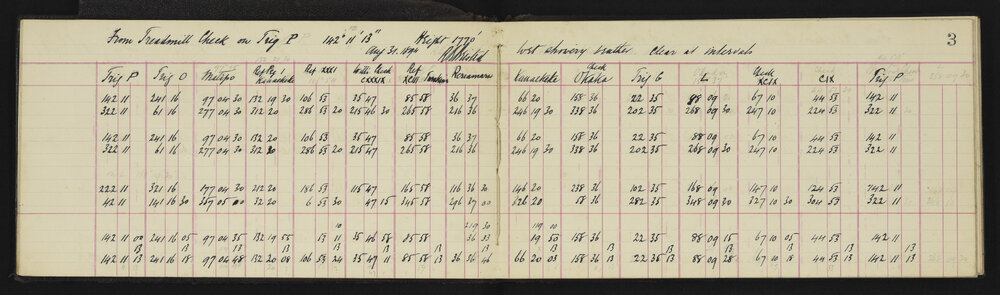 From Treadmill Check on Trig P 142° 11' 13" Height 1770'
Aug 31. 1894 West showery weather. Clear at intervals 3
Trig P Trig O Matipo Ref XXXI CXXXIX Ref XCIII Check Ohaka Trig G L Check XCIX CIX Trig P
142 11 241 16 97 04 30 132 19 30 106 53 35 47 85 58 36 37 66 20 158 36 22 35 88 09 67 10 44 53 142 11
322 11 61 16 277 04 30 312 20 286 53 20 215 46 30 265 58 216 36 246 19 30 338 36 202 35 268 09 30 247 10 224 53 322 11
142 11 241 16 97 04 30 132 20 106 53 35 47 85 58 36 37 66 20 158 36 22 35 88 09 67 10 44 53 142 11
322 11 61 16 277 04 30 312 20 286 53 20 215 47 265 58 216 36 246 19 30 338 36 202 35 268 09 30 247 10 224 53 322 11
222 11 321 16 177 04 30 212 20 186 53 115 47 165 58 116 36 30 146 20 238 36 102 35 168 09 147 10 124 53 142 11
42 11 141 16 30 357 05 00 32 20 6 53 30 47 15 345 58 296 37 00 326 20 58 36 282 35 348 09 30 327 10 30 304 53 322 11
10 219 30 119 10
142 11 00 241 16 05 97 04 35 132 19 55 53 11 35 46 58 85 58 36 33 19 50 158 36 22 35 88 09 15 67 10 05 44 53 142 11
13 13 13 13 13 13 13 13 13 13 13 13 13 13 13
142 11 13 241 16 18 97 04 48 132 20 08 106 53 24 35 47 11 85 58 13 36 36 46 66 20 03 158 36 13 22 35 13 88 09 28 67 10 18 44 53 13 142 11 13